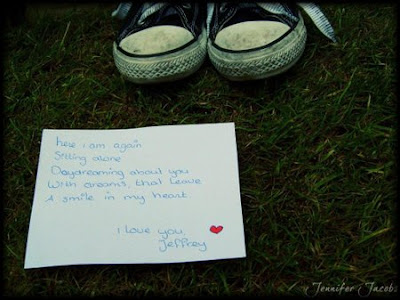 here i am again
Sitting alone
Daydreaming about you
With dreams, that leave
A smile in my heart
I love you,
Jeffrey
Jennifer Jacobs